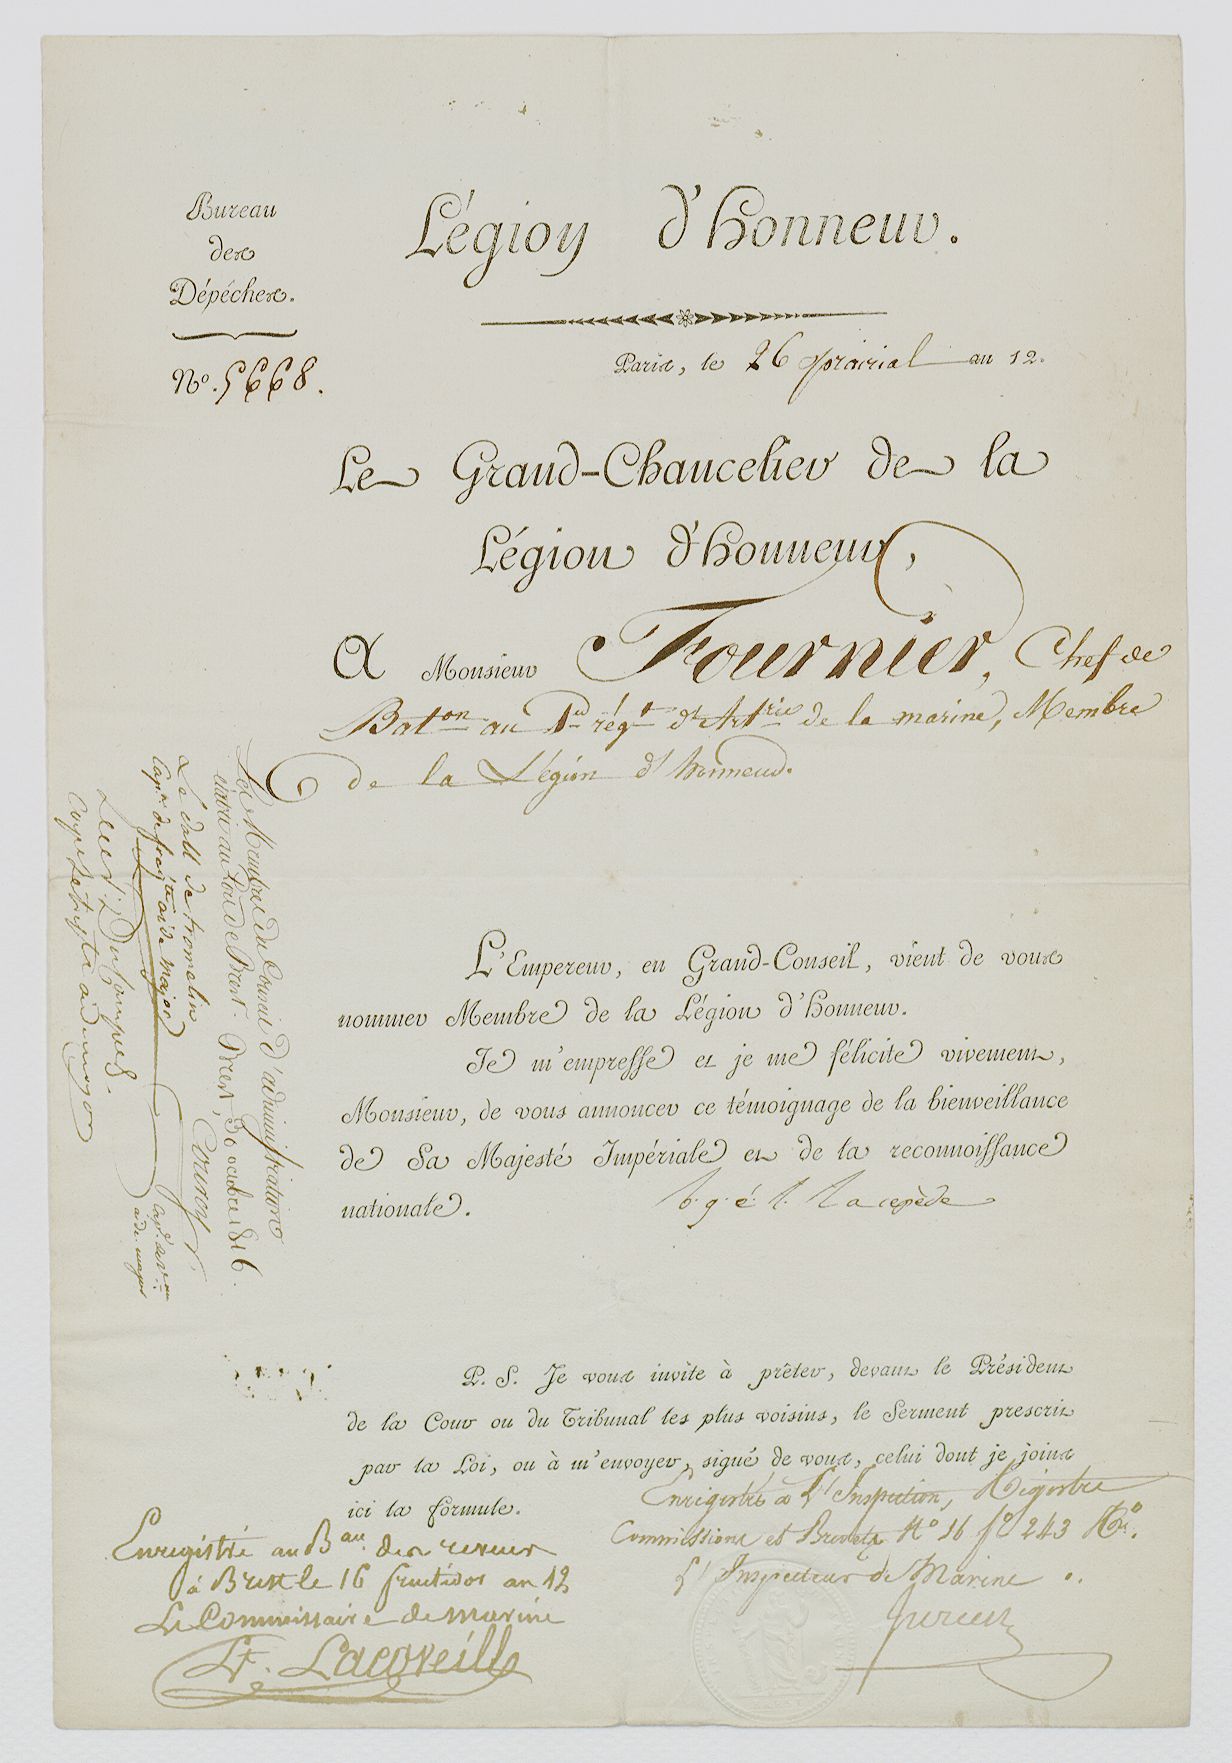 Bureau
des
Dépêches.
N.º 5668.
Légion d'honneur.
Paris, le 26 prairial an 12.
Le Grand-Chancelier de la
Légion d'honneur,
A Monsieur Fournier, Chef de
Bat.on au 1.er rég.t d'Art.rie de la marine, Membre
de la Légion d'honneur.
L'Empereur, en Grand-Conseil, vient de vous
nommer Membre de la Légion d'honneur.
Je m'empresse et je me félicite vivement,
Monsieur, de vous annoncer ce témoignage de la bienveillance
de Sa Majesté Impériale et de la reconnoissance
nationale.
b. g. é. l. Lacepède
P. S. Je vous invite à prêter, devant le Président
de la Cour ou du Tribunal les plus voisins, le Serment prescrit
par la Loi, ou à m'envoyer, signé de vous, celui dont je joins
ici la formule.
Enregistré à l'Inspection, Régistre
Commissions et Brevets N.º 16 f.º 243 R.º.
L'Inspecteur de Marine
Enregistré au B.au des revues
à Brest le 16 fructidor an 12
Le Commissaire de marine
Lacoveille
Les Membres du Conseil d'administration
Brest, 30 octobre 1816.
Le dall de tromelin
Cap.ne de frég.te aide major
aide major